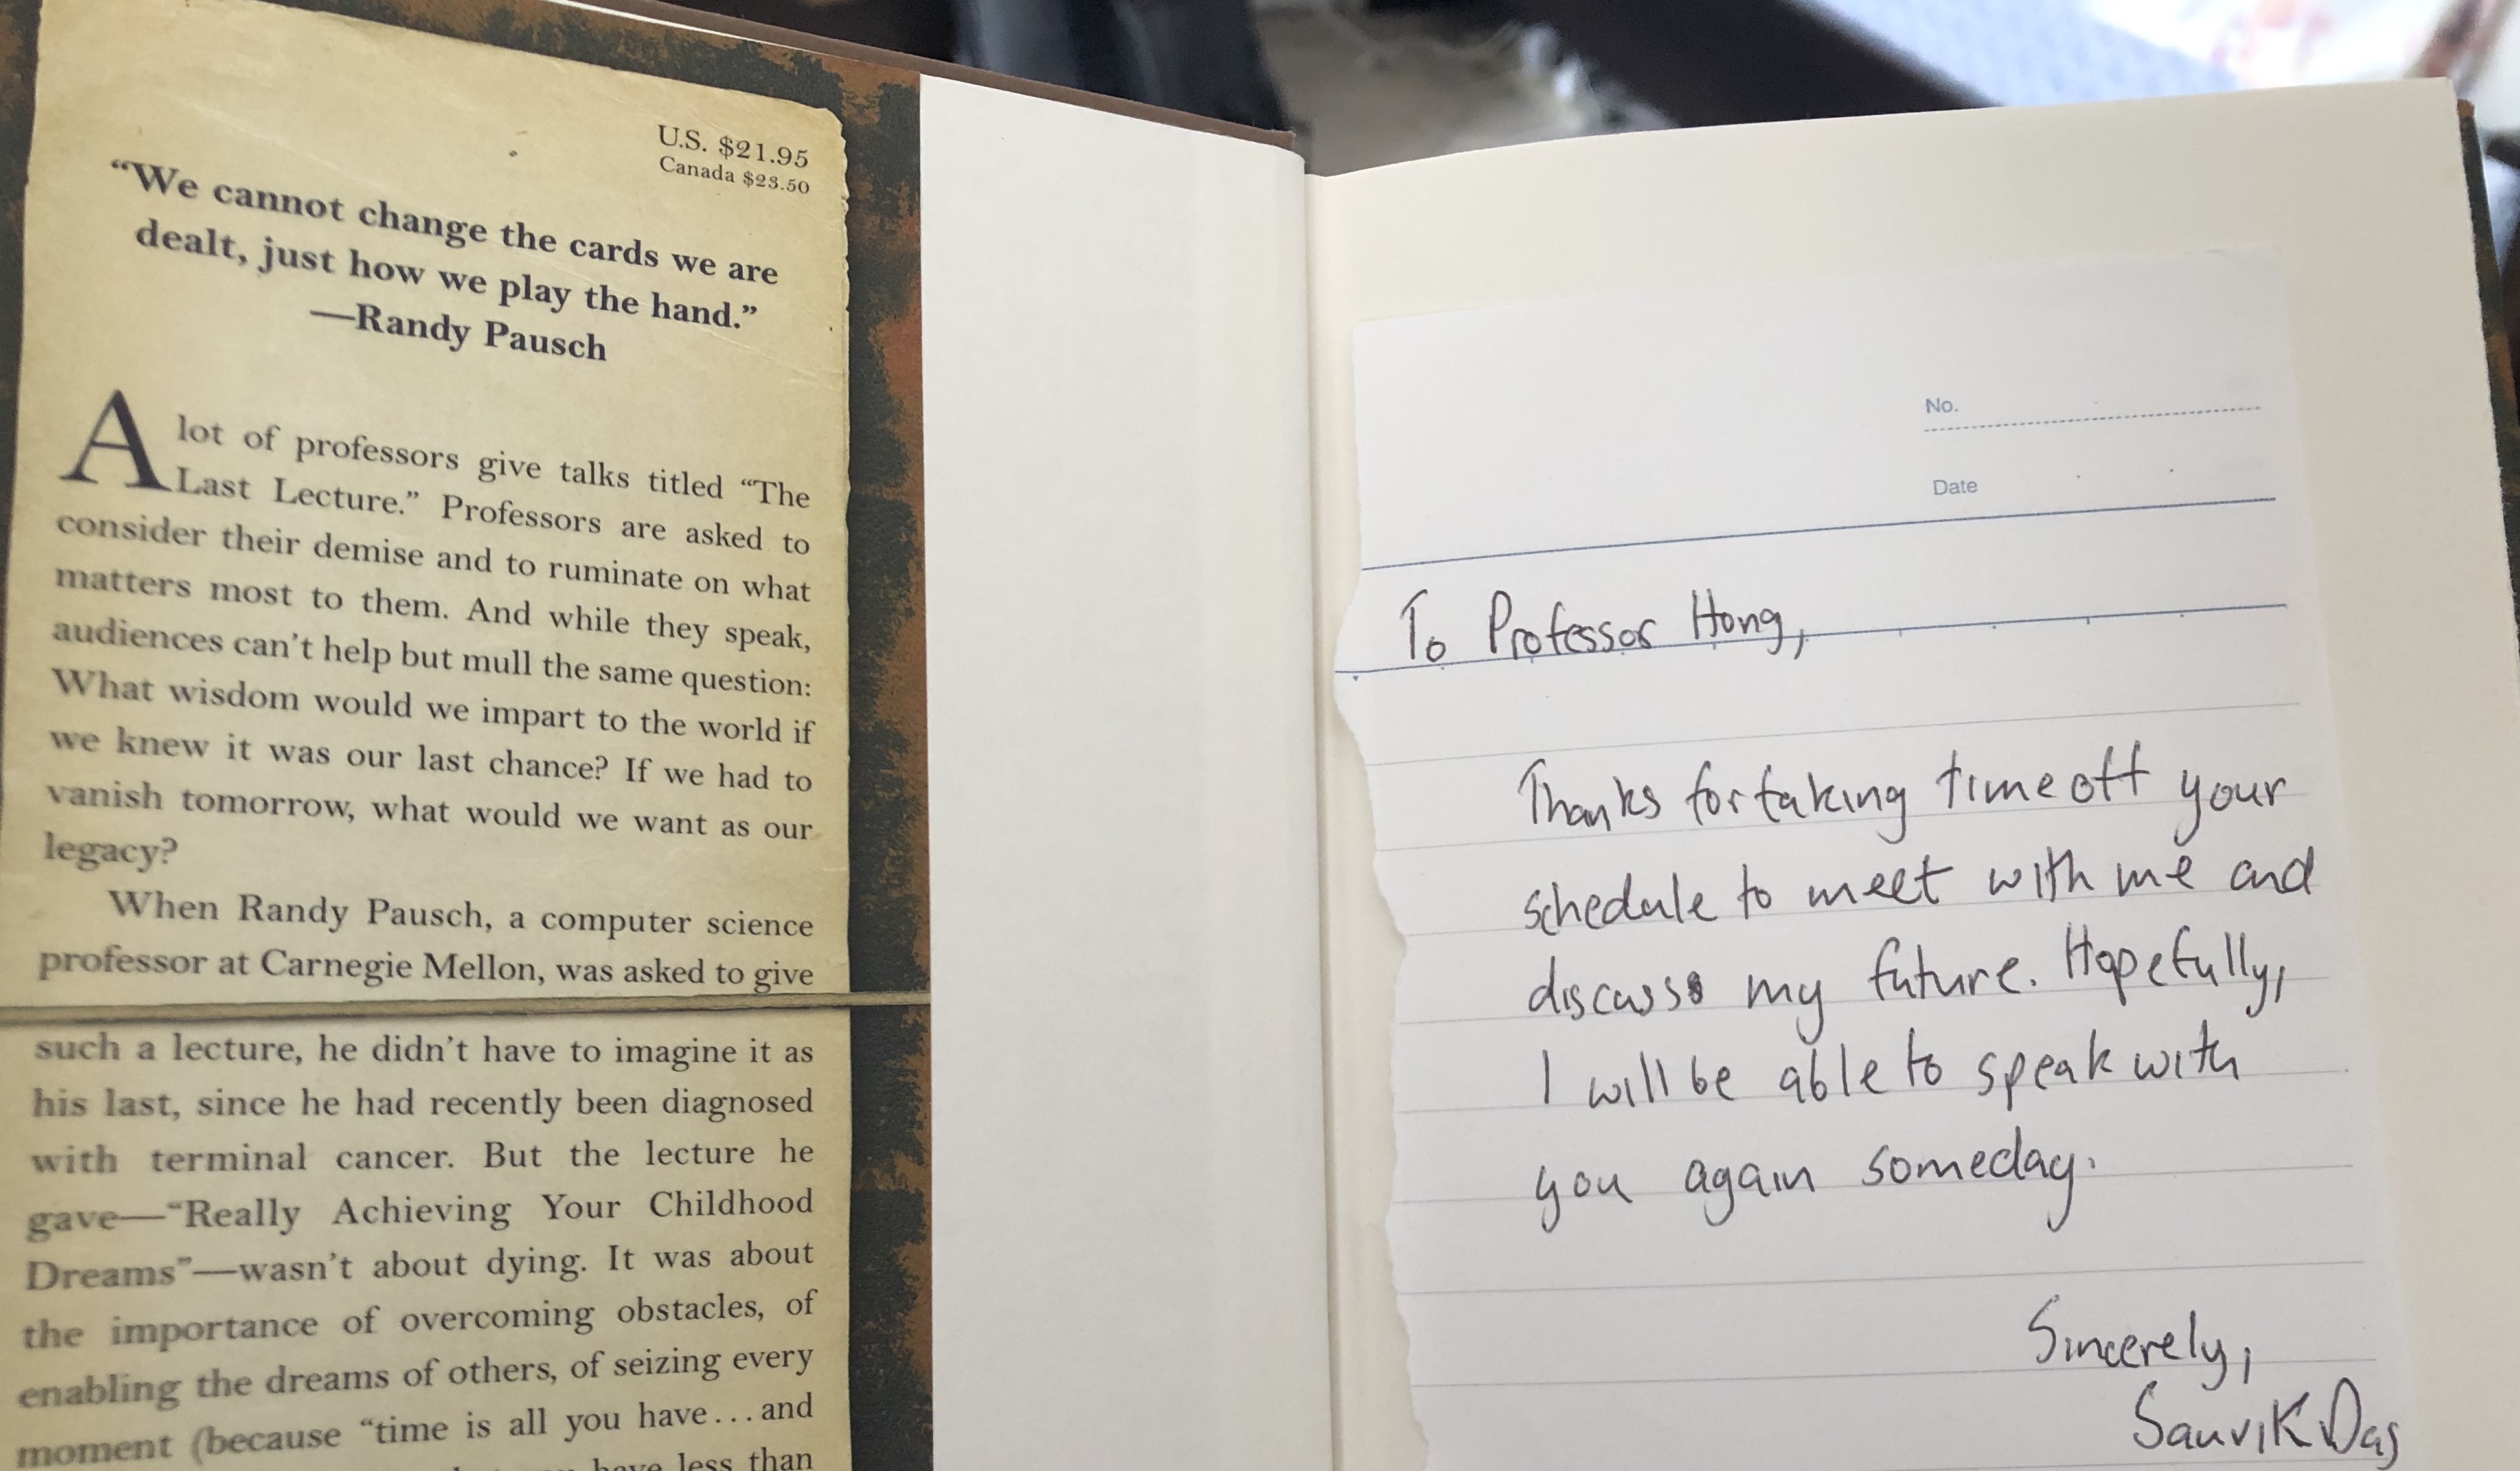 U.S. $21.95
Canada $23.50
“We cannot change the cards we are
dealt, just how we play the hand.”
—Randy Pausch
A lot of professors give talks titled “The
Last Lecture.” Professors are asked to
consider their demise and to ruminate on what
matters most to them. And while they speak,
audiences can’t help but mull the same question:
What wisdom would we impart to the world if
we knew it was our last chance? If we had to
vanish tomorrow, what would we want as our
legacy?
When Randy Pausch, a computer science
professor at Carnegie Mellon, was asked to give
such a lecture, he didn’t have to imagine it as
his last, since he had recently been diagnosed
with terminal cancer. But the lecture he
gave—“Really Achieving Your Childhood
Dreams”—wasn’t about dying. It was about
the importance of overcoming obstacles, of
enabling the dreams of others, of seizing every
moment (because “time is all you have...and
have less than
No.
Date
To Professor Hong,
Thanks for taking time off your
schedule to meet with me and
discuss my future. Hopefully,
I will be able to speak with
you again someday.
Sincerely,
Sauvik Das